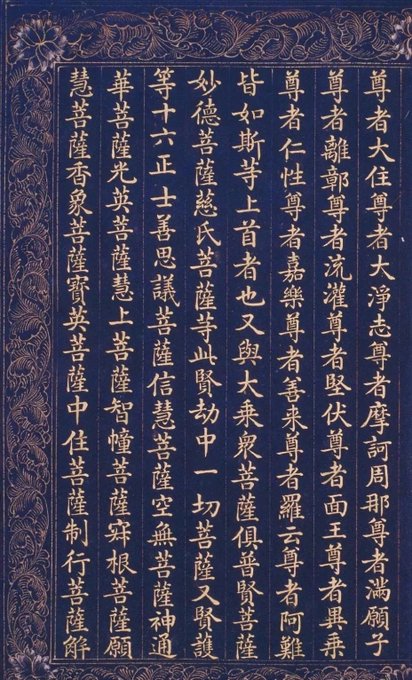 尊者大住尊者大淨志尊者摩訶周那尊者滿願子
尊者離鄣尊者流灌尊者堅伏尊者面王尊者異乘
尊者仁性尊者嘉樂尊者善来尊者羅云尊者阿難
皆如斯䓁上首者也又與大乘衆菩薩俱普賢菩薩
妙德菩薩慈氏菩薩䓁此賢劫中一切菩薩又賢護
等十六正士善思議菩薩信慧菩薩空無菩薩神通
華菩薩光英菩薩慧上菩薩智幢菩薩寂根菩薩願
慧菩薩香象菩薩寶英菩薩中住菩薩制行菩薩解